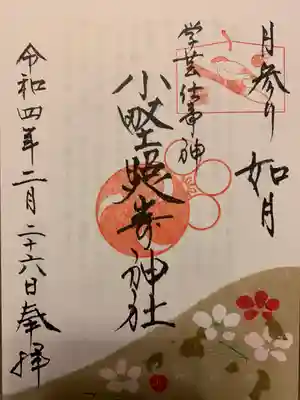 月参り
如月
学芸仕事神
小野照崎神社
令和四年二月二十六日奉拝